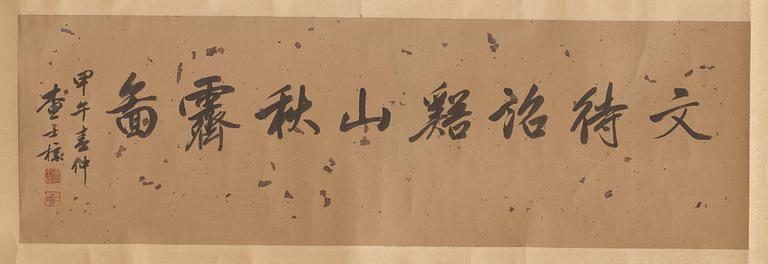 文待詔谿山秋霽圖
甲午春仲
查士標